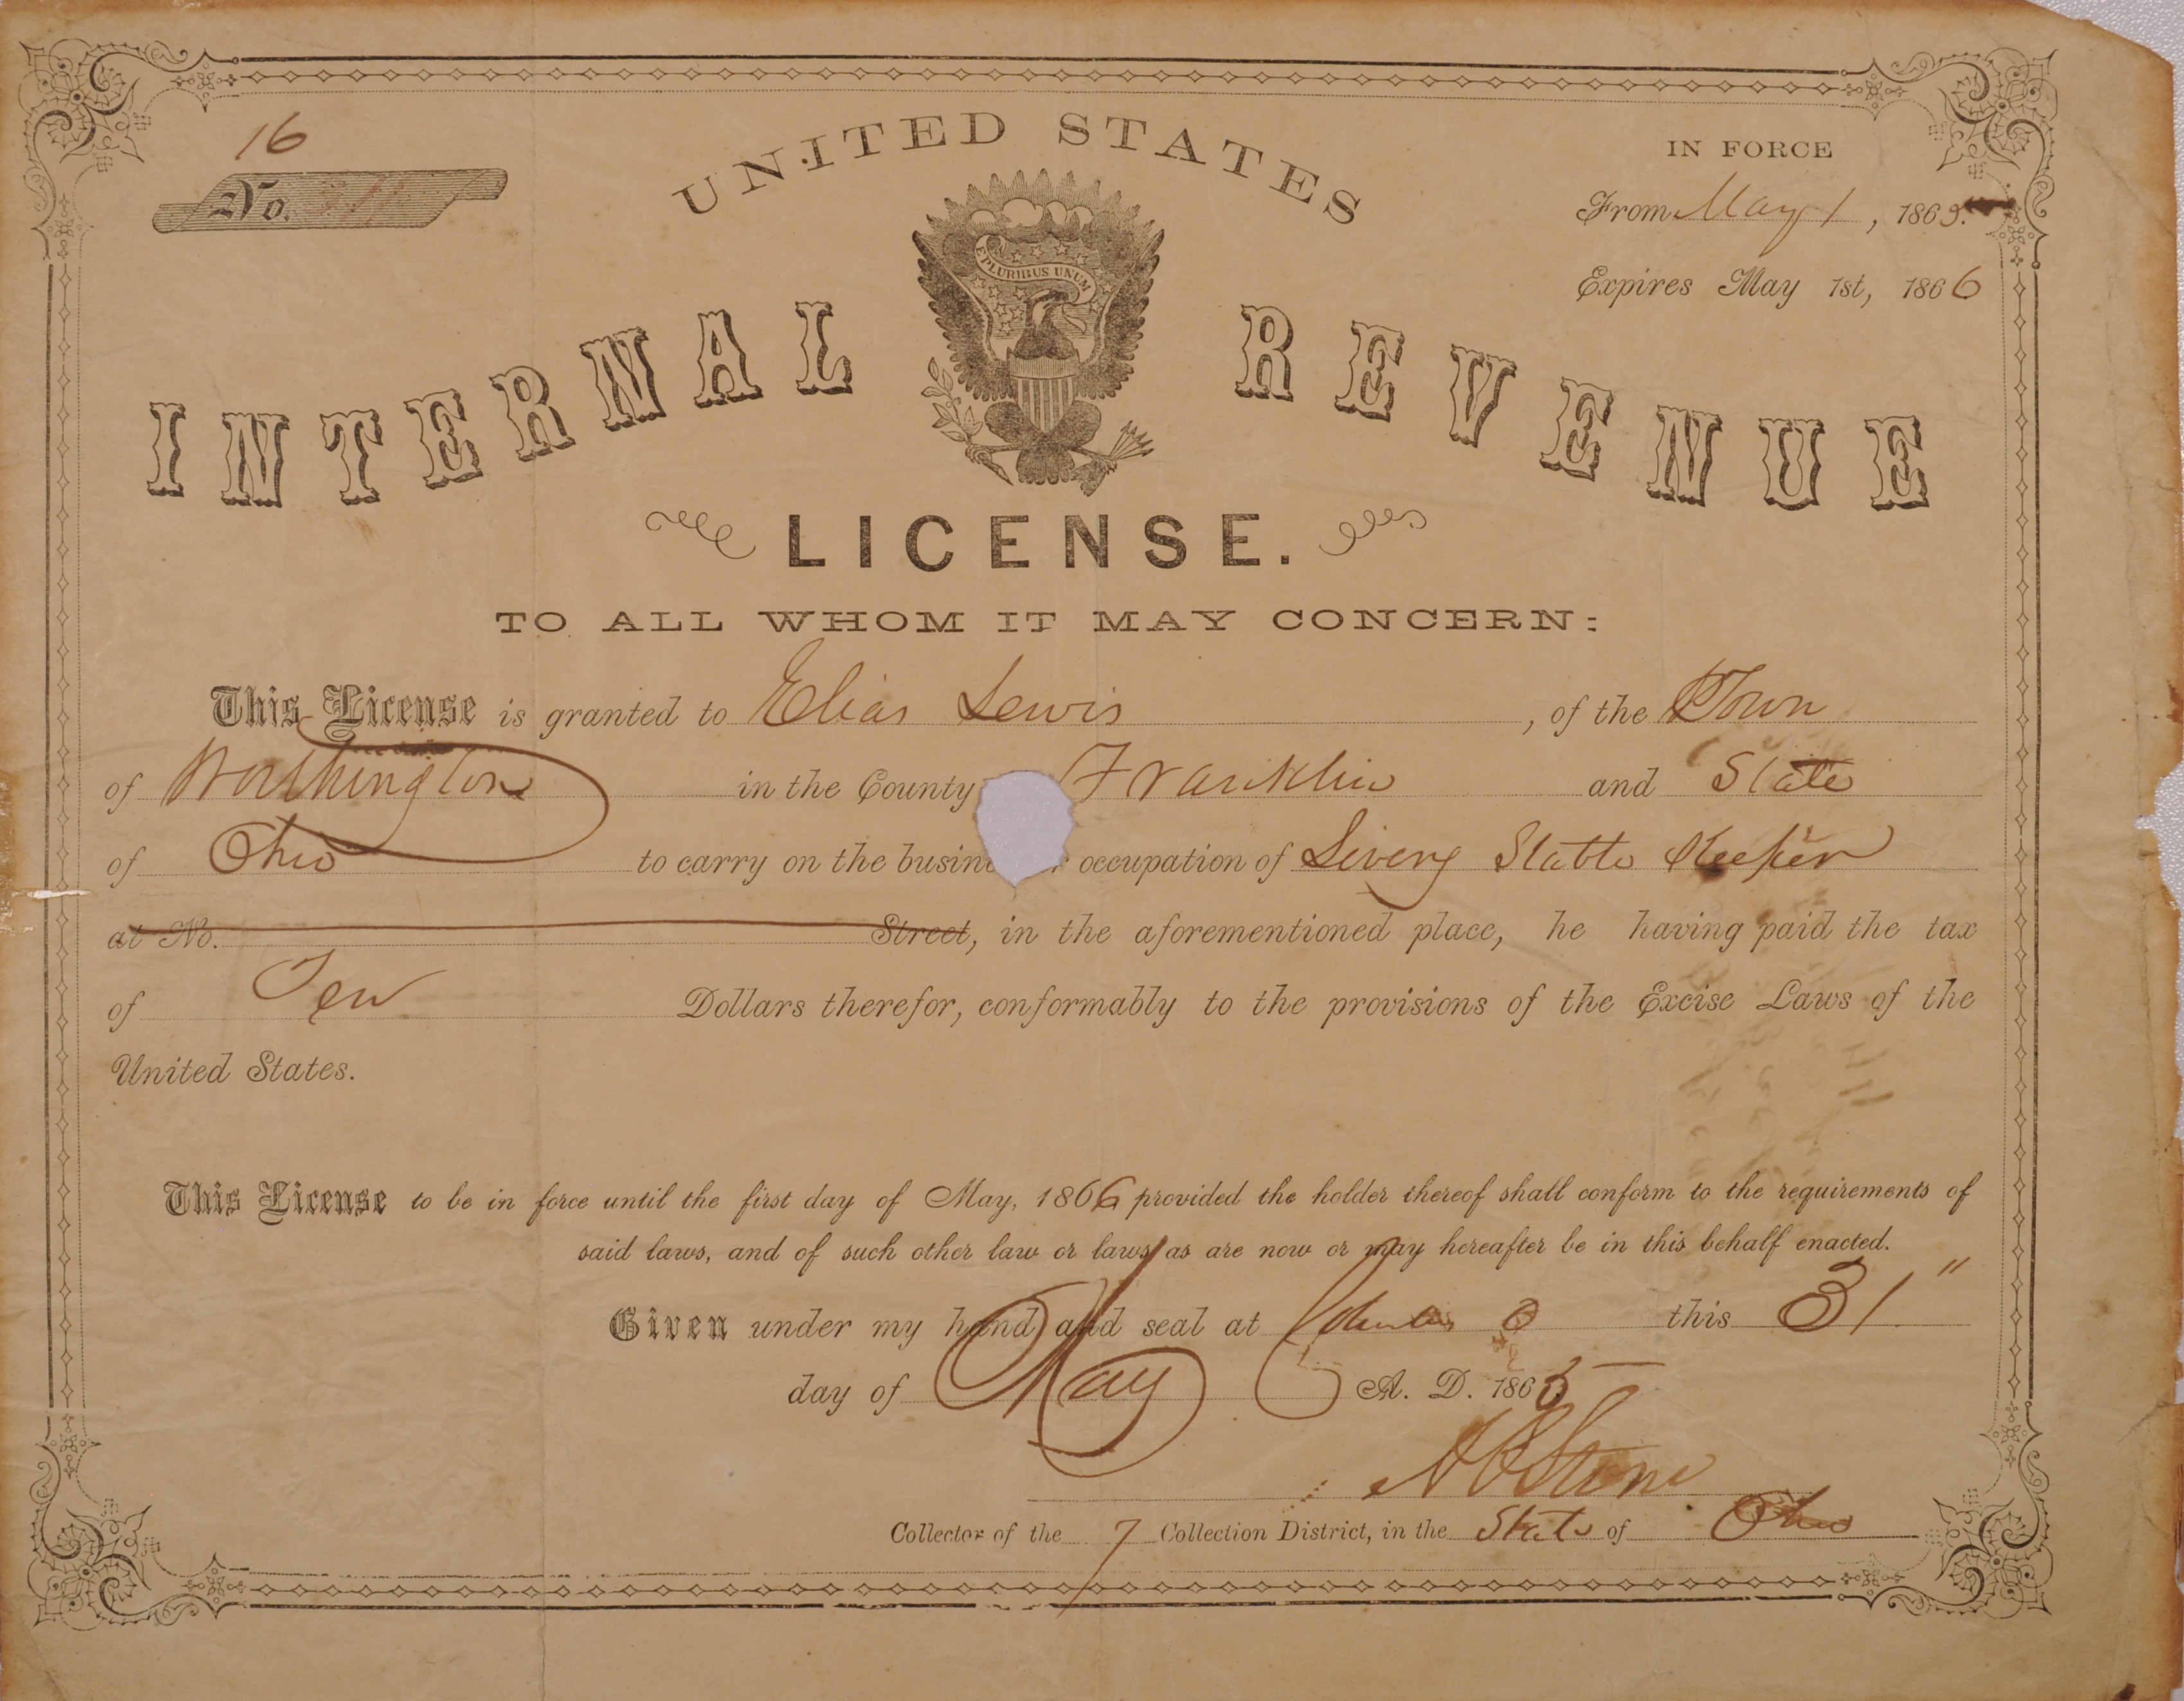 16
No.
UNITED STATES
E PLURIBUS UNUM
IN FORCE
From May 1, 1865
Expires May 1st, 1866
INTERNAL REVENUE
LICENSE.
TO ALL WHOM IT MAY CONCERN:
This License is granted to Elias Lewis, of the Town
of Worthington in the County Franklin and State
of Ohio to carry on the busine r occupation of Livery Stable Keeper
at No. Street, in the aforementioned place, he having paid the tax
of Ten Dollars therefor, conformably to the provisions of the Excise Laws of the
United States.
This License to be in force until the first day of May, 1866 provided the holder thereof shall conform to the requirements of
said laws, and of such other law or laws as are now or may hereafter be in this behalf enacted.
Given under my hand and seal at Columbus O this 31"
day of May A. D. 1865
Stone
Collector of the 7 Collection District, in the State of Ohio